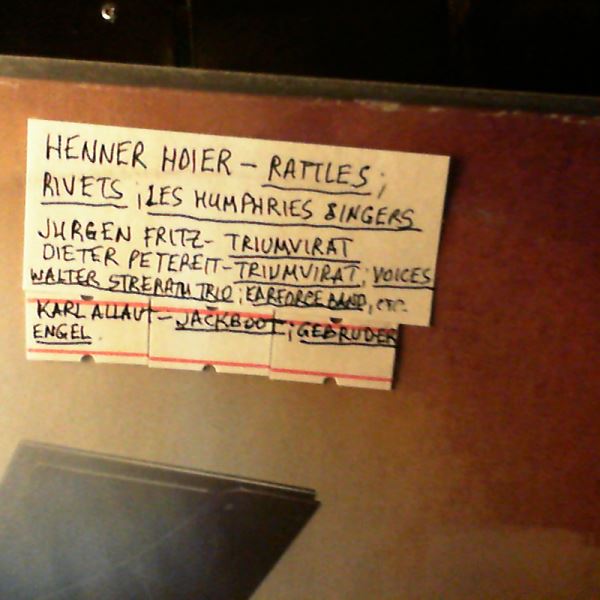 HENNER HOIER – RATTLES;
RIVETS; LES HUMPHRIES SINGERS
JURGEN FRITZ- TRIUMVIRAT
DIETER PETEREIT-TRIUMVIRAT; VOICES
WALTER STRERATH TRIO; EARFORCE BAND, ETC.
KARL ALLAUT – JACKBOOT; GEBRUDER
ENGEL.